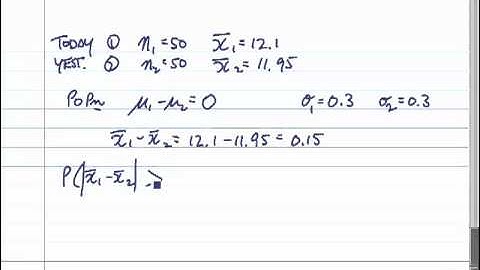 TODAY ① n₁=50 x̄₁=12.1
YEST. ② n₂=50 x̄₂=11.95
POPn μ₁-μ₂=0 σ₁=0.3 σ₂=0.3
x̄₁-x̄₂=12.1-11.95=0.15
P(|x̄₁-x̄₂| ≥